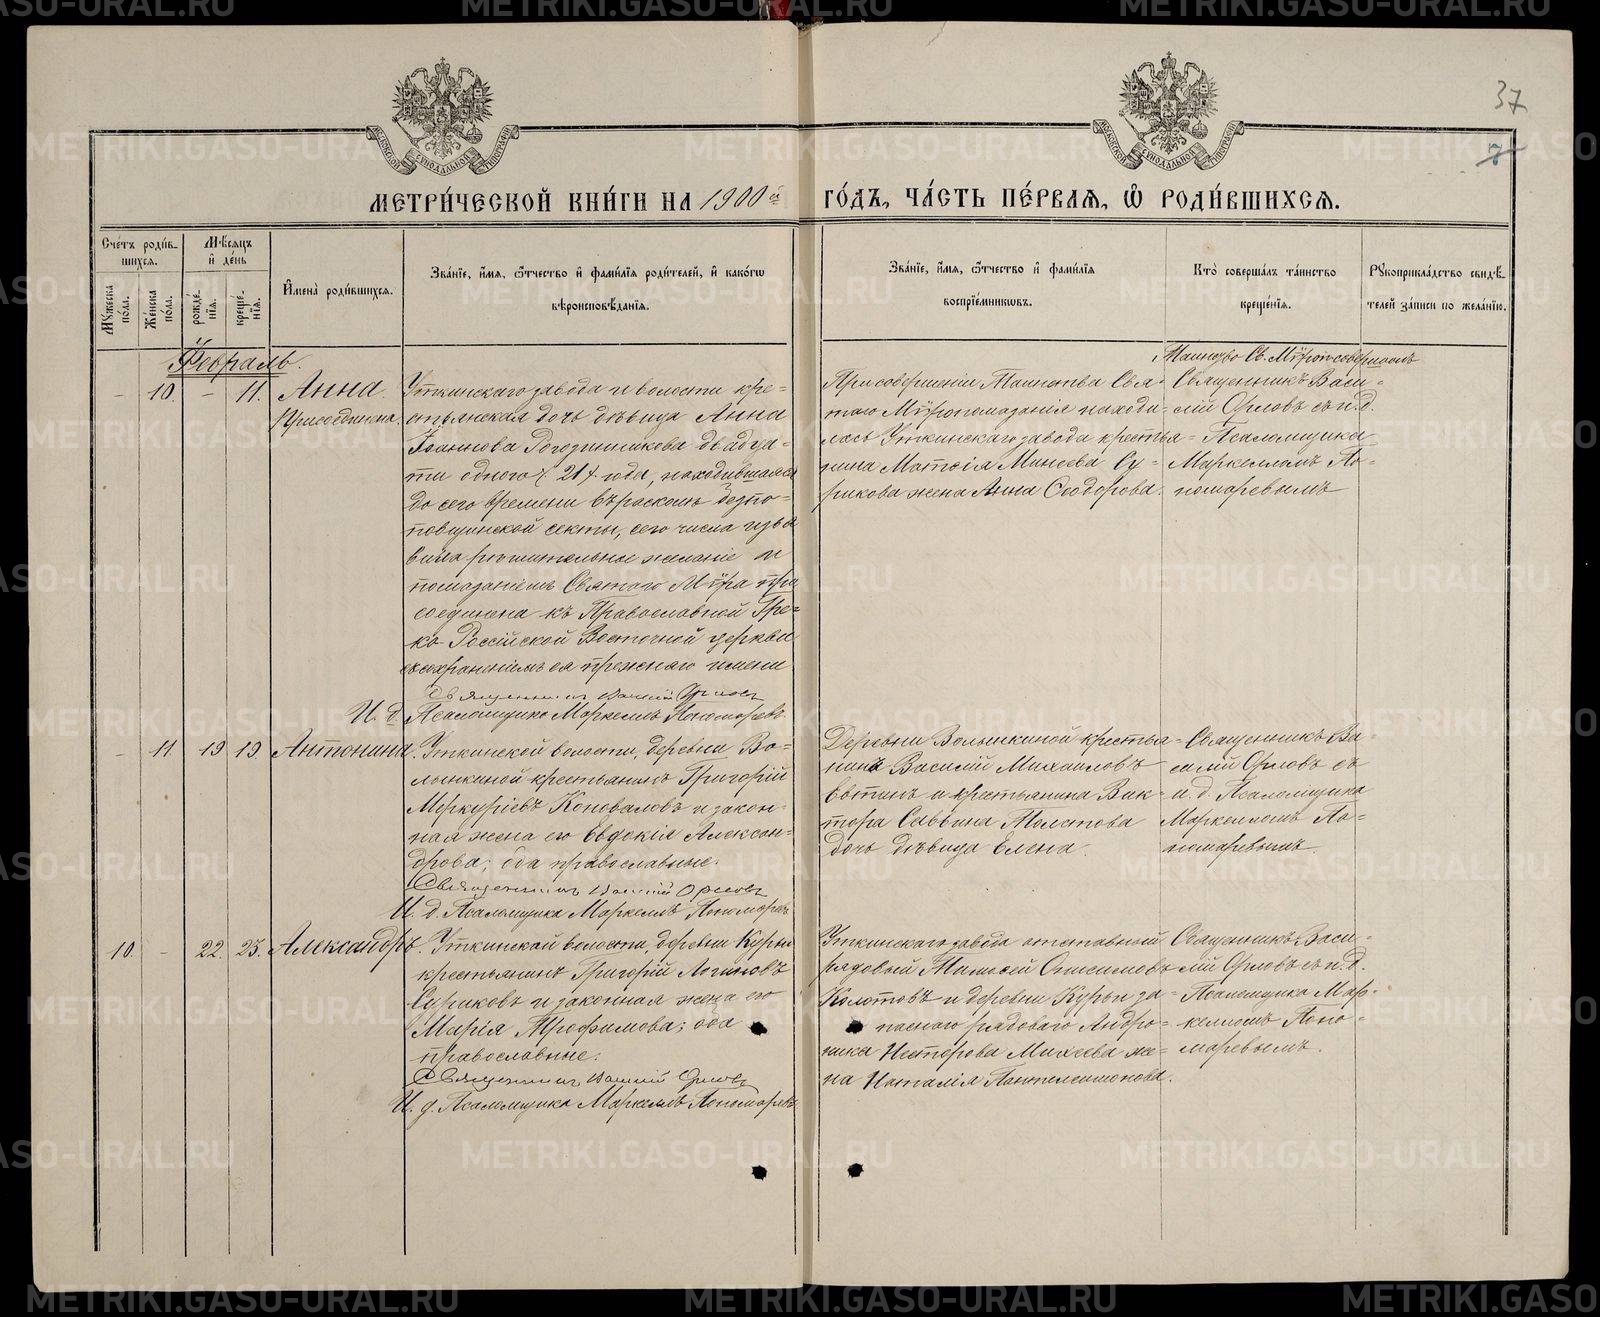 37
7
МЕТРИ́ЧЕСКОЙ КНИ́ГИ НА 1900й ГО́ДЪ, ЧА́СТЬ ПЕ́РВАЯ, Ѽ РОДИ́ВШИХСЯ.
Сче́тъ роди́в-
шихся.
Мꙋ́жеска по́ла.
Же́нска по́ла.
Мѣ́сяцъ
и҆ де́нь
рожде́нїя.
креще́нїя.
И҆мена̀ роди́вшихся.
Зва́нїе, и҆́мя, ѻ҆́тчество и҆ фами́лїя роди́телей, и҆ како́гѡ
вѣроисповѣ́данїя.
Зва́нїе, и҆́мя, ѻ҆́тчество и҆ фами́лїя
воспрїе́мникѡвъ.
Кто̀ соверша́лъ та́инство
креще́нїя.
Рꙋкоприкла́дство свидѣ́-
телей за́писи по жела́нїю.
Февраль.
- 10. - 11. Анна.
Присоединена.
Уткинскаго завода и волости кре=
стьянская дочь дѣвица Анна
Іоаннова Рогозинникова двадца-
ти одного /21/ года, находившаяся
до сего времени въ расколѣ безпо-
повщинской секты, сего числа изъя
вила рѣшительное желаніе и
помазаніемъ Святаго Мѵра при
соединена къ Православной Гре=
ко-Россійской Восточной церкви
съ сохраненіемъ ея прежняго имени
Священникъ Василій Орловъ
И. д. Псаломщика Маркеллъ Пономаревъ.
При совершеніи Таинства Свя-
таго Мѵропомазанія находи-
лась Уткинскаго завода крестья=
нина Матѳія Минеева Су-
рикова жена Анна Ѳеодорова.
Таинство Св. Мѵра совершалъ
Священникъ Васи-
лій Орловъ съ и.д.
Псаломщика
Маркелломъ По-
номаревымъ
- 11 19 19 Антонина.
Уткинской волости, деревни Во-
лынкиной крестьянинъ Григорій
Меркуріевъ Коноваловъ и закон-
ная жена его Евдокія Алексан-
дрова; оба православные.
Священникъ Василій Орловъ
И. д. Псаломщика Маркеллъ Пономаревъ
Деревни Волынкиной крестья-
нинъ Василій Михайловъ
и крестьянина Вик-
тора Саввина Толстова
дочь дѣвица Елена.
Священникъ Ва-
силій Орловъ съ
и. д. Псаломщика
Маркелломъ По-
номаревымъ.
10. - 22. 23. Александръ.
Уткинской волости, деревни Курьи
крестьянинъ Григорій Логиновъ
Суриковъ и законная жена его
Марія Трофимова; оба
православные.
Священникъ Василій Орловъ
И. д. Псаломщика Маркеллъ Пономаревъ
Уткинскаго завода отставной
рядовый Тимоѳей Онисимовъ
Колотовъ и деревни Курьи за-
паснаго рядоваго Андро-
ника Нестерова Михеева же=
на Наталія Пантелеимонова.
Священникъ Васи-
лій Орловъ съ и.д.
Псаломщика Мар-
келломъ Поно-
маревымъ.
METRIKI.GASO-URAL.RU